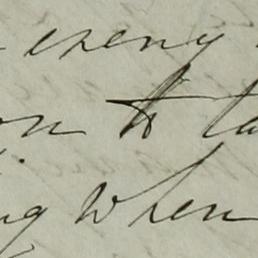 enemy
on to ta
ng when